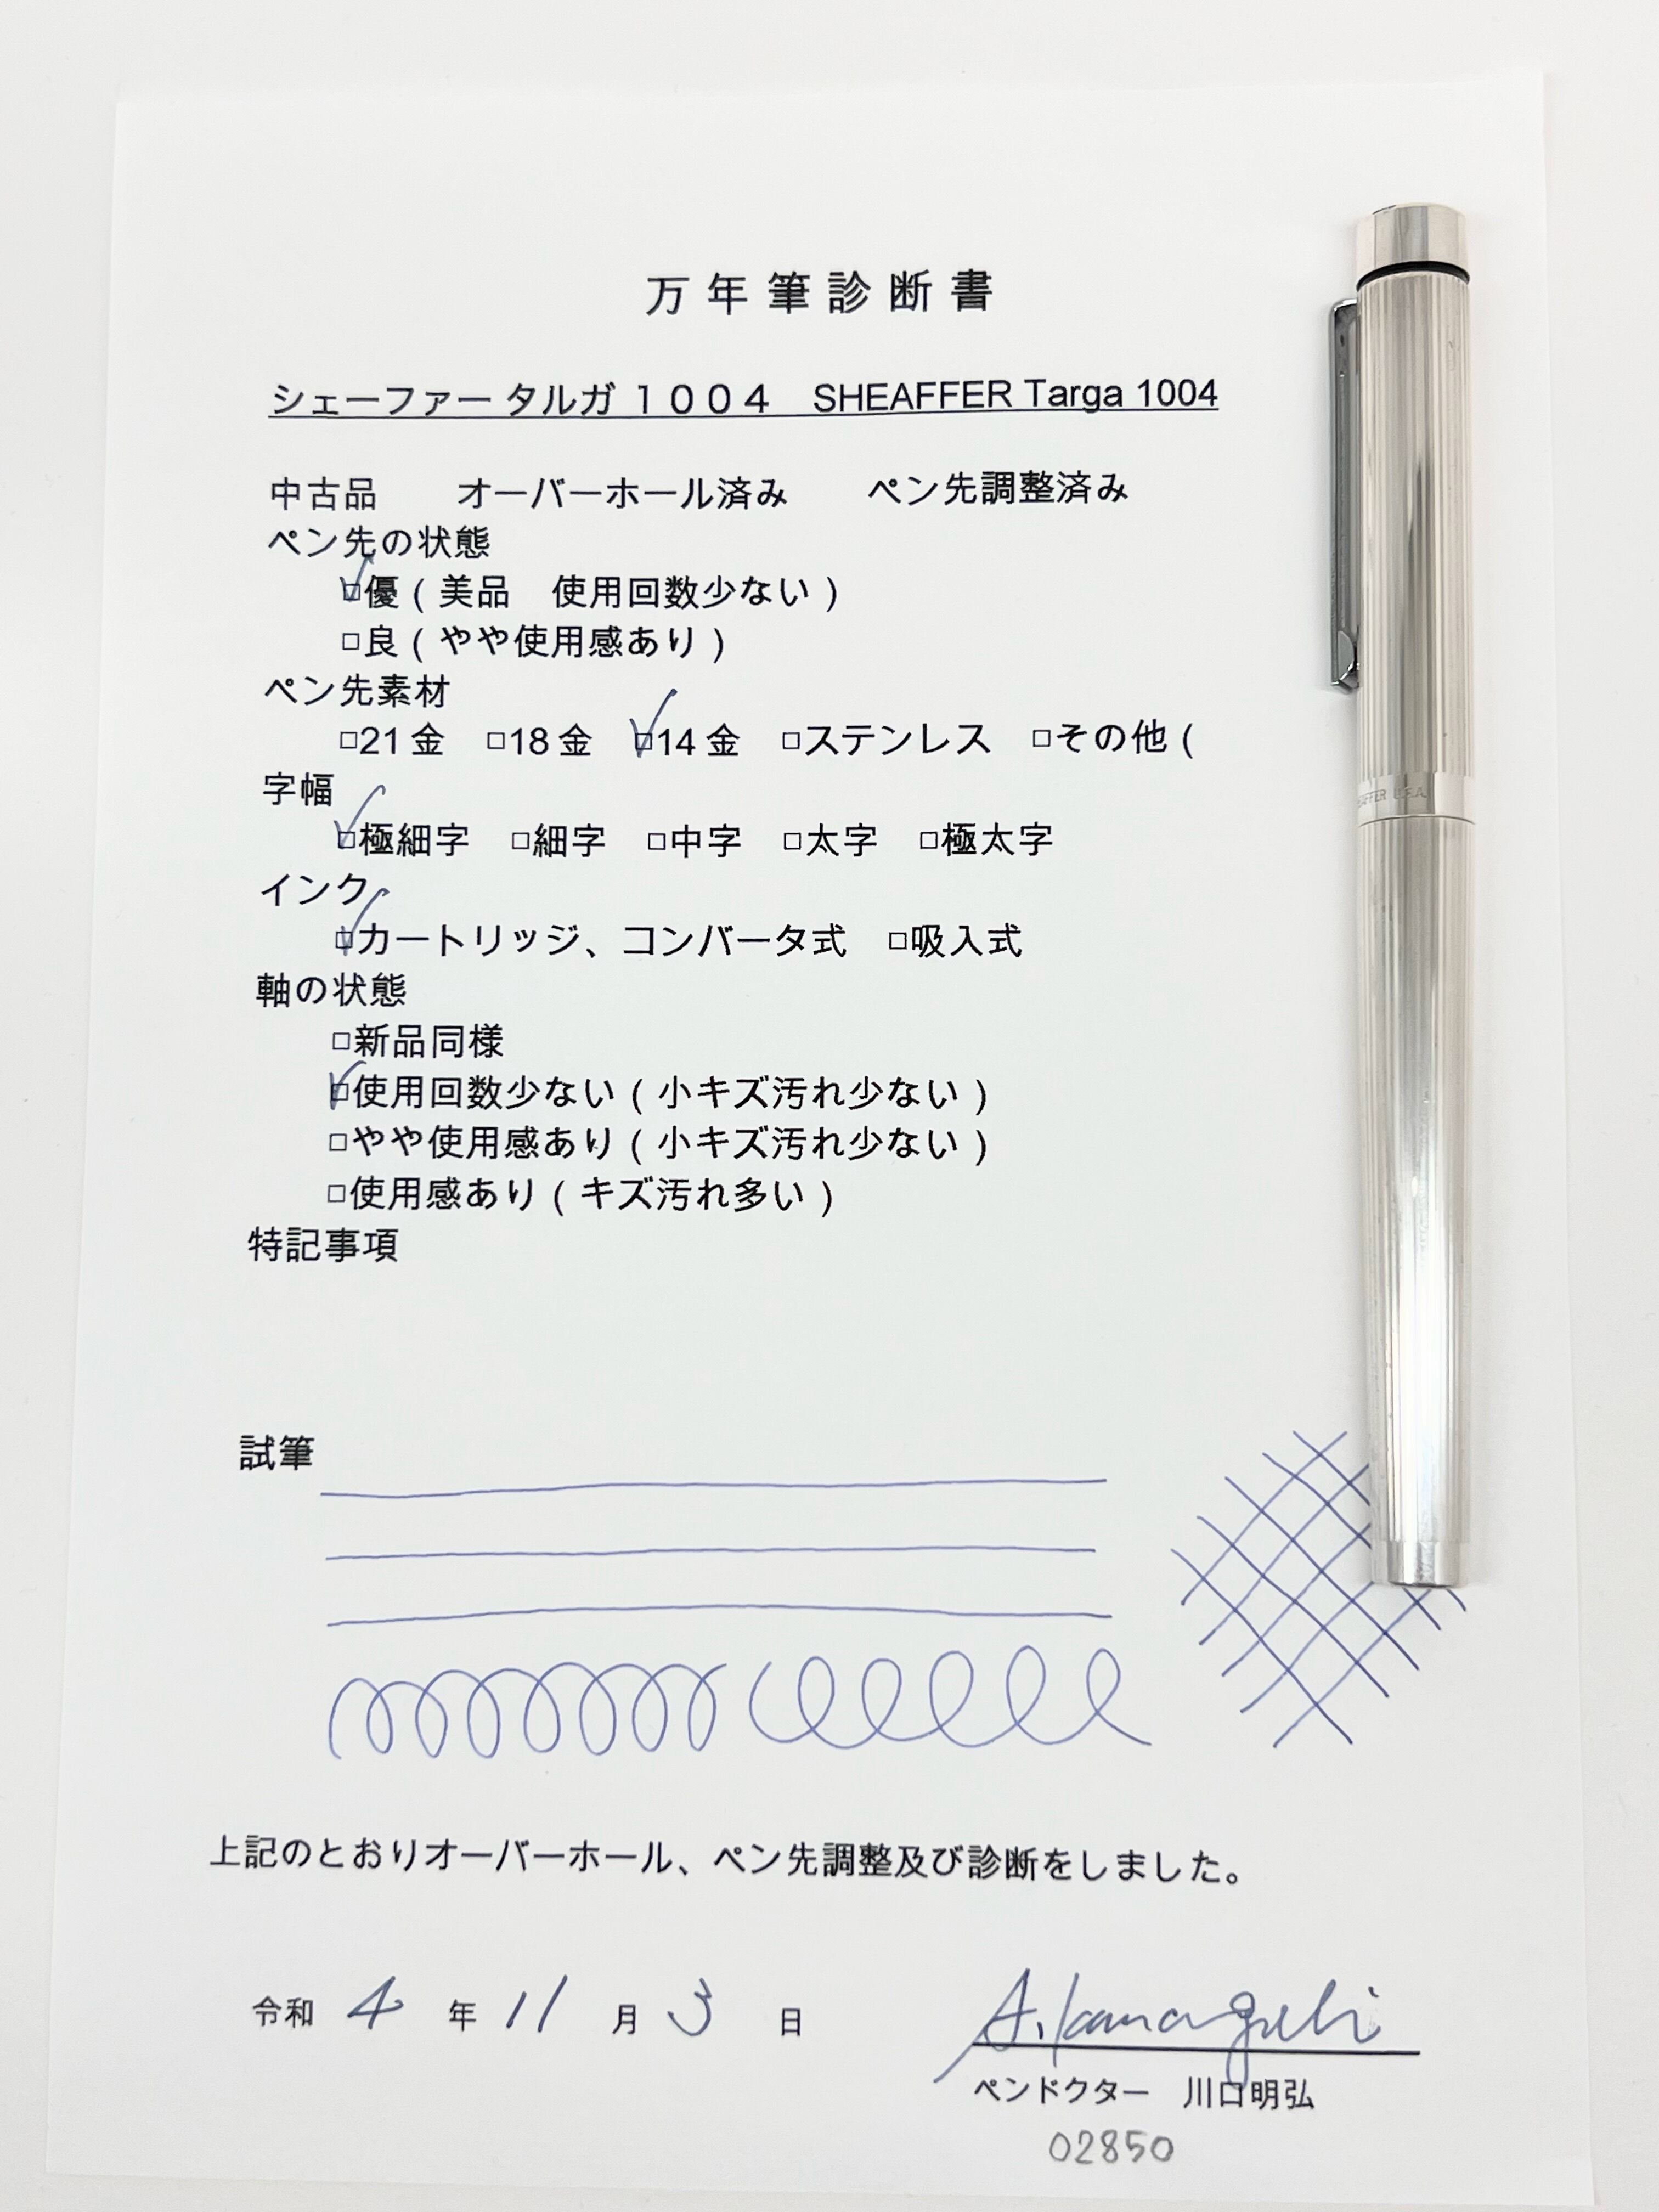 万年筆診断書
シェーファー タルガ １００４　SHEAFFER Targa 1004
中古品　　オーバーホール済み　　ペン先調整済み
ペン先の状態
☑優（美品　使用回数少ない）
□良（やや使用感あり）
ペン先素材
□21金　□18金　☑14金　□ステンレス　□その他（
字幅
☑極細字　□細字　□中字　□太字　□極太字
インク
☑カートリッジ、コンバータ式　□吸入式
軸の状態
□新品同様
☑使用回数少ない（小キズ汚れ少ない）
□やや使用感あり（小キズ汚れ少ない）
□使用感あり（キズ汚れ多い）
特記事項
試筆
上記のとおりオーバーホール、ペン先調整及び診断をしました。
令和 4 年 11 月 3 日
A. Kawaguchi
ペンドクター　川口明弘
02850